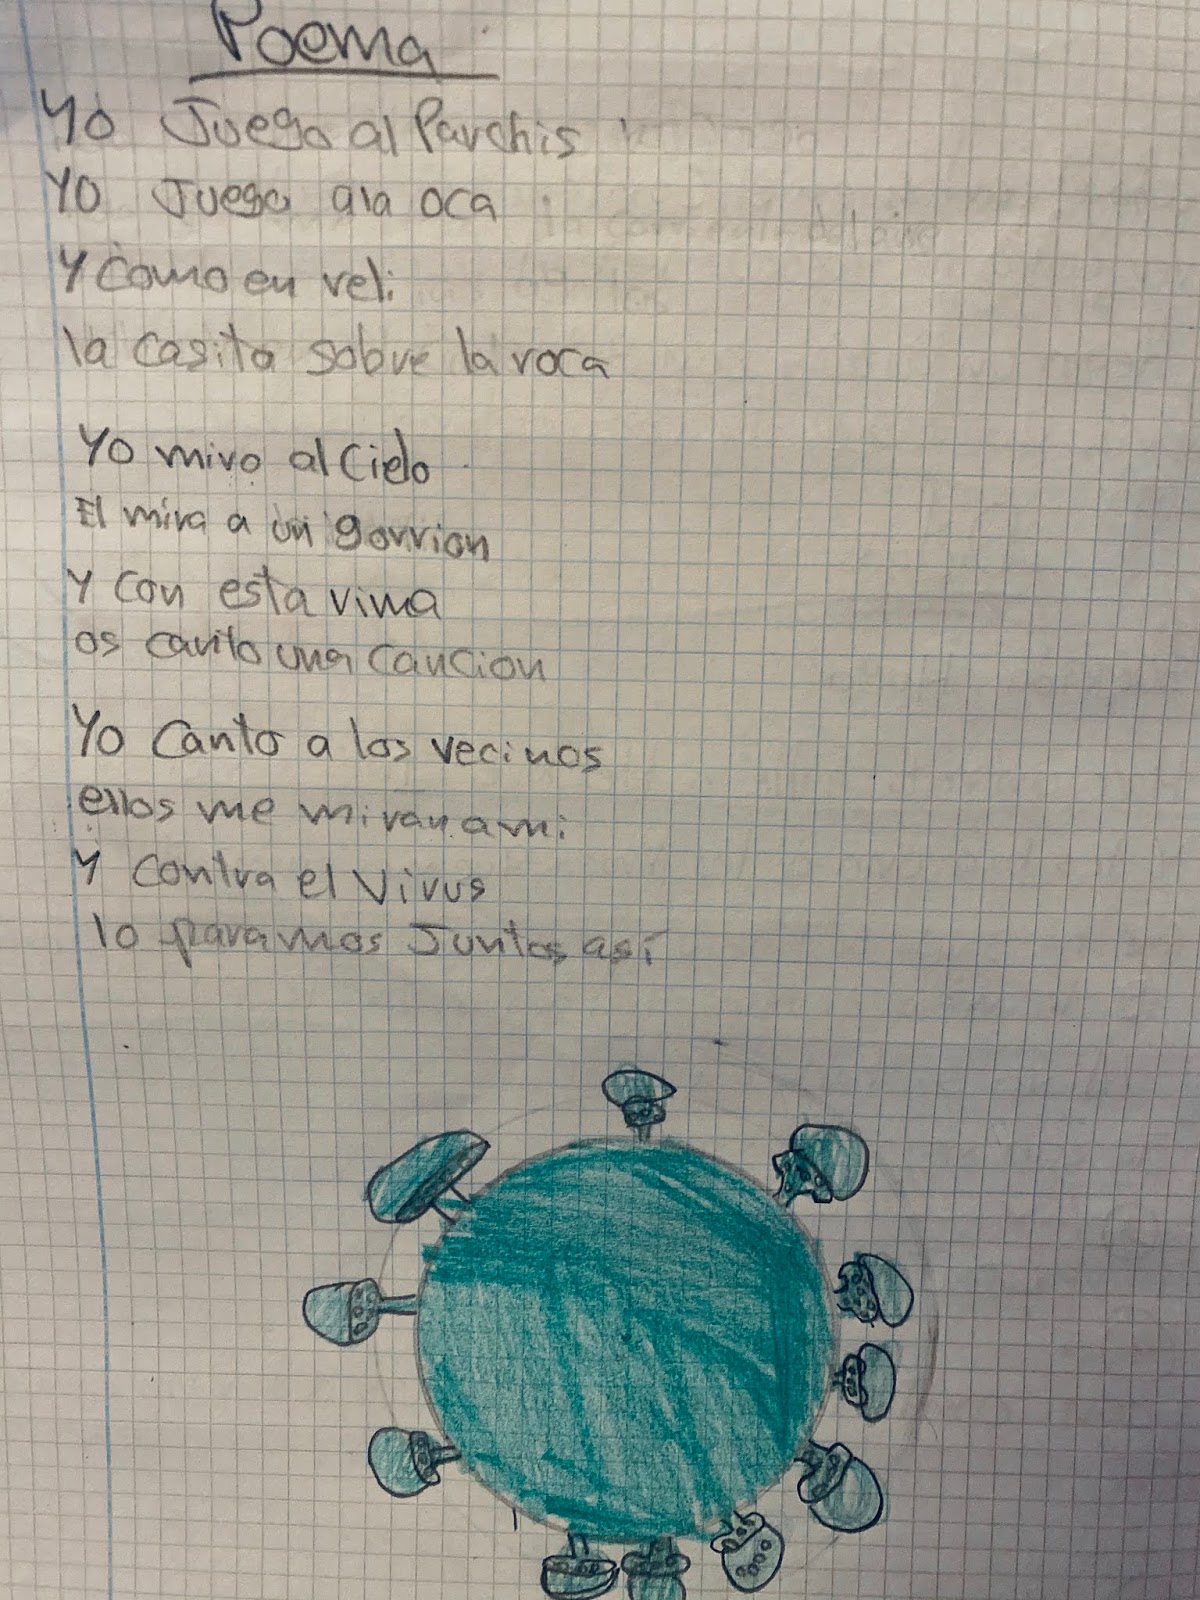 Poema
Yo Juego al Parchis
Yo Juego a la oca
Y como en reli
la casita sobre la roca
Yo miro al Cielo
El mira a un gorrion
Y con esta rima
os canto una cancion
Yo Canto a los vecinos
ellos me miran a mi
Y contra el Virus
lo paramos Juntos así